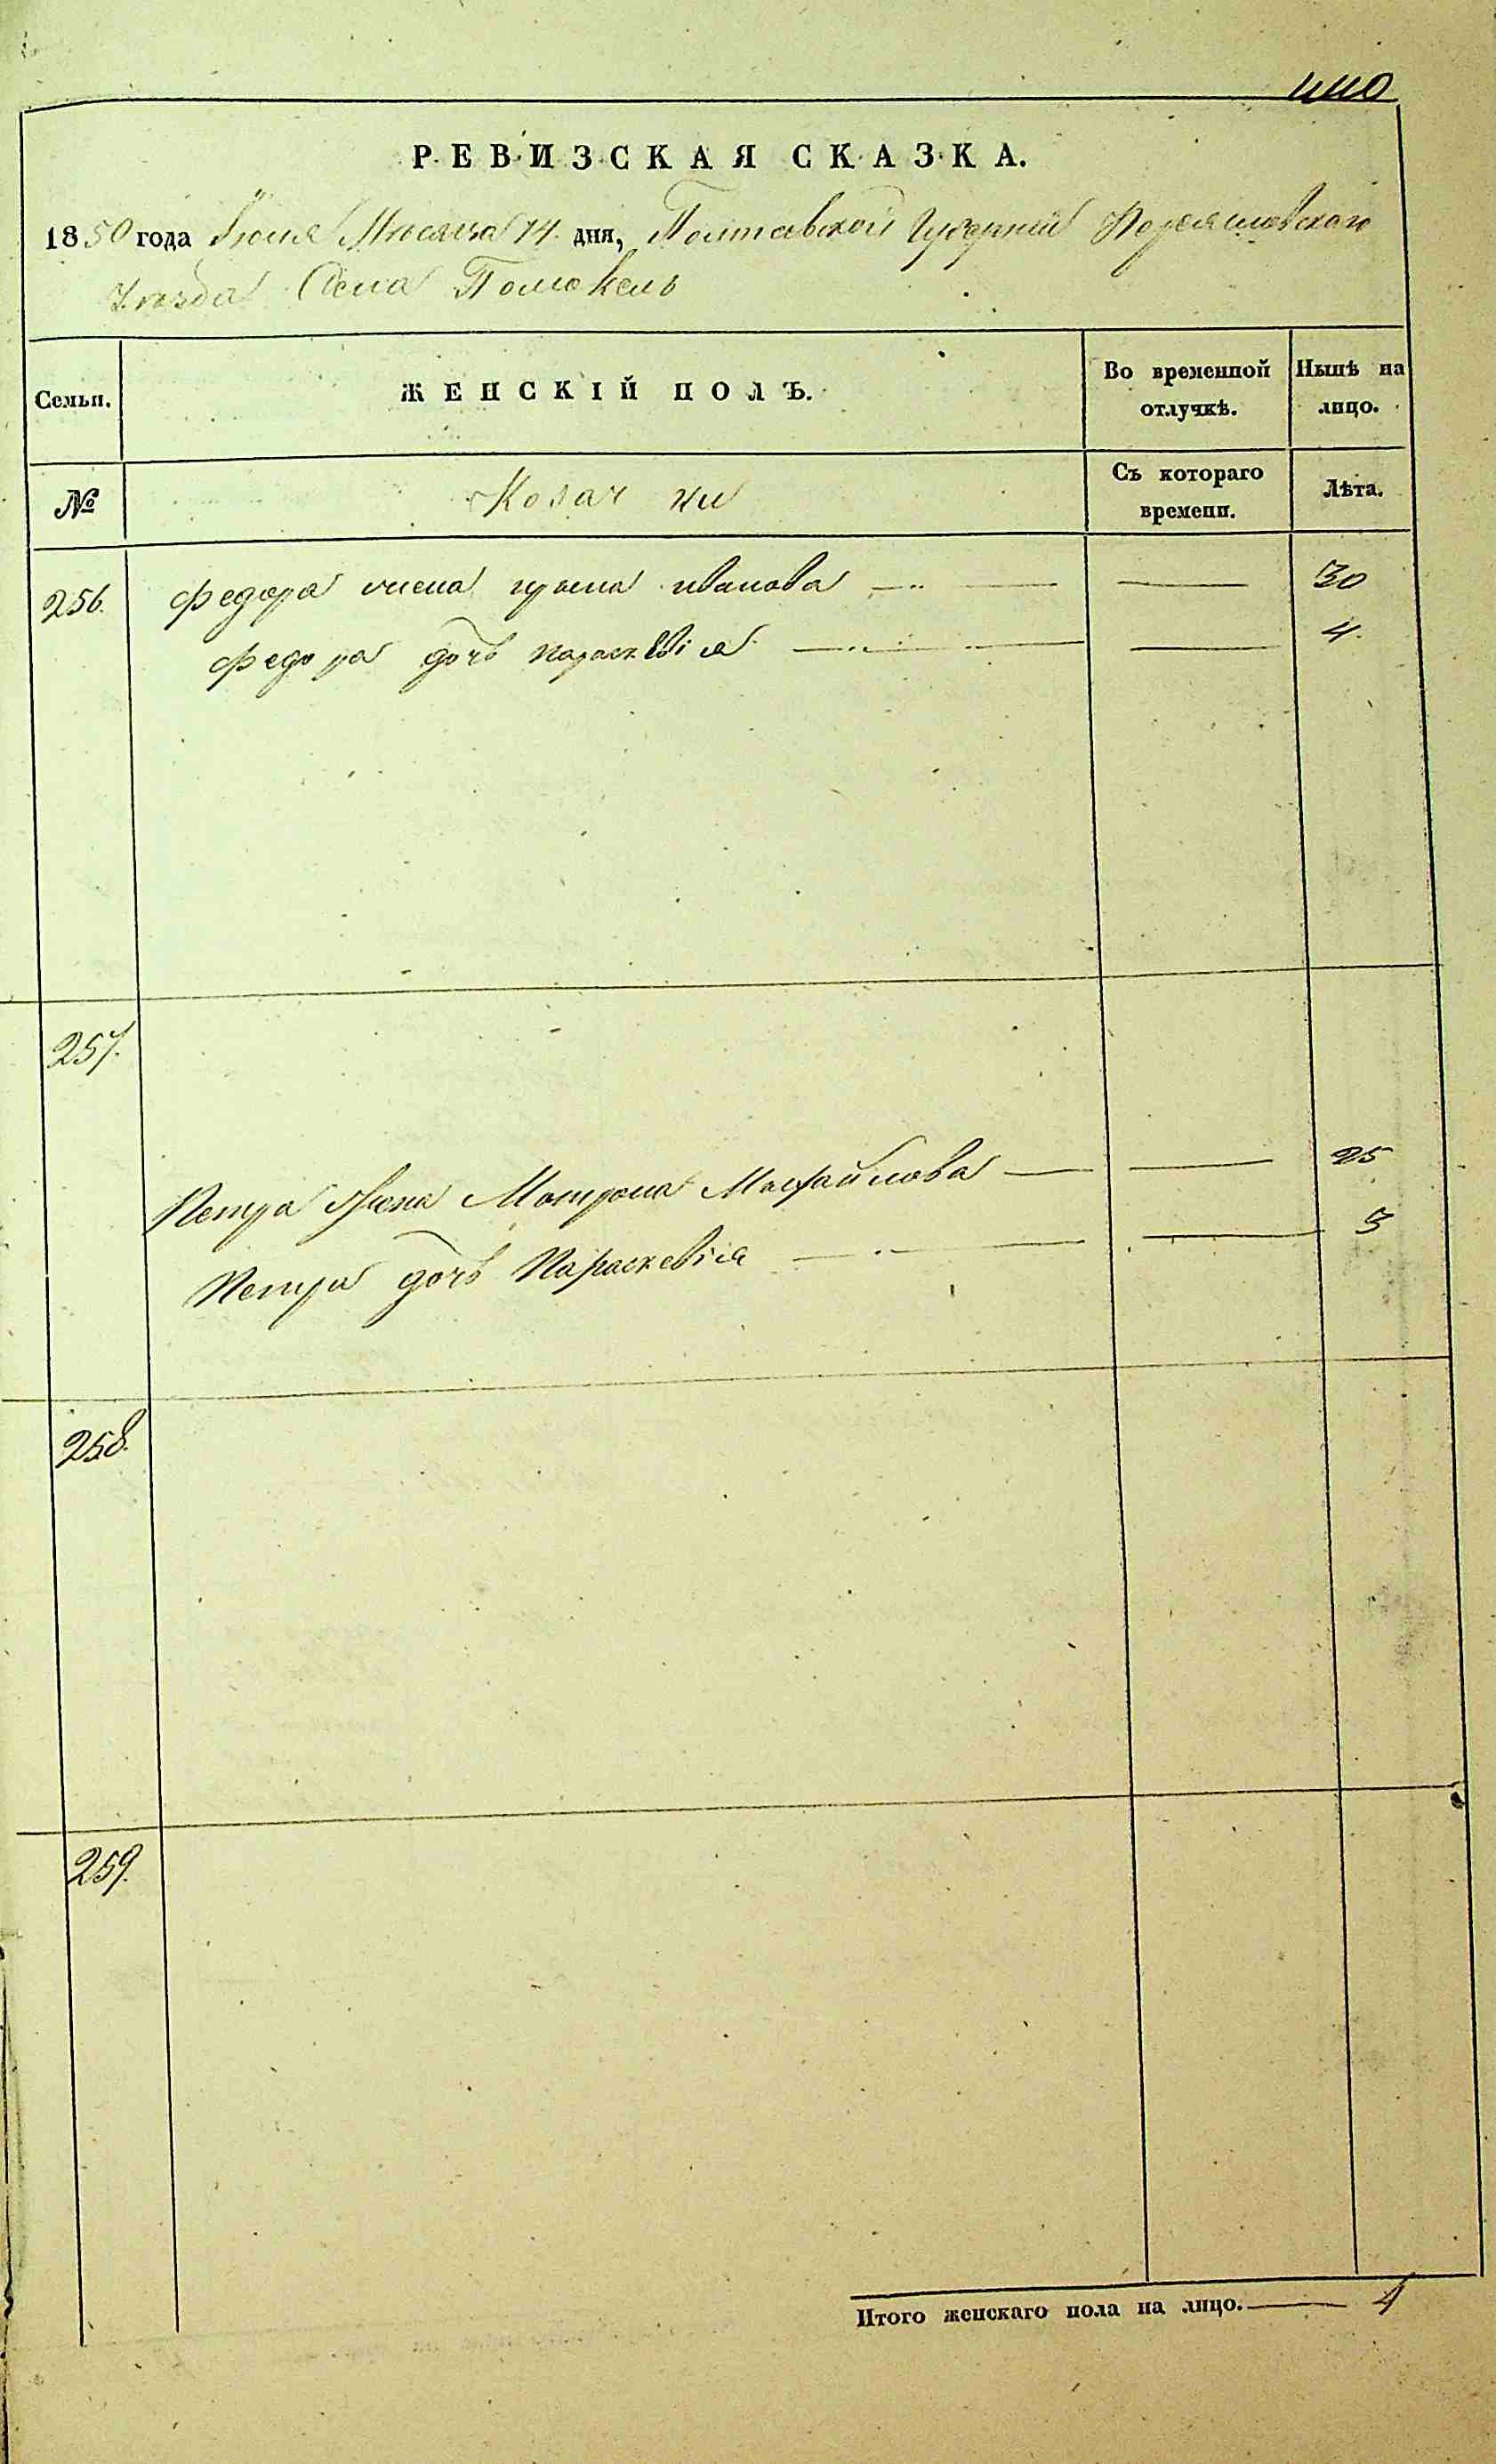 440
РЕВИЗСКАЯ СКАЗКА.
1850 года Іюня Мѣсяца 14 дня, Полтавской Губерніи Переяславскаго
Уѣзда Села Помокель
Семьи.
ЖЕНСКІЙ ПОЛЪ.
Во временной отлучкѣ.
Нынѣ на лицо.
№
Козачки
Съ котораго времени.
Лѣта.
256. Федора жена ирына иванова — — 30
Федора дочь параскевія — — 4.
257.
Петра Жена Мотрона Михайлова — — 25
Петра дочь Параскевія — — 3
258.
259.
Итого женскаго пола на лицо. — 4